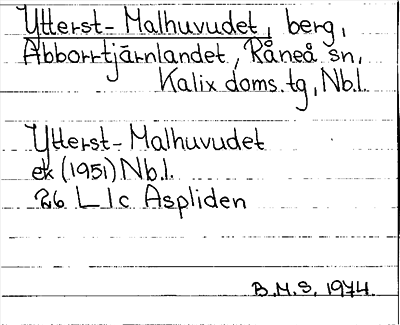 Ytterst-Malhuvudet, berg,
Abborrtjärnlandet, Råneå sn,
Kalix doms.tg, Nb.l.
Ytterst-Malhuvudet
ek (1951) Nb.l.
26 L Ic Aspliden
B.M.S, 1974.